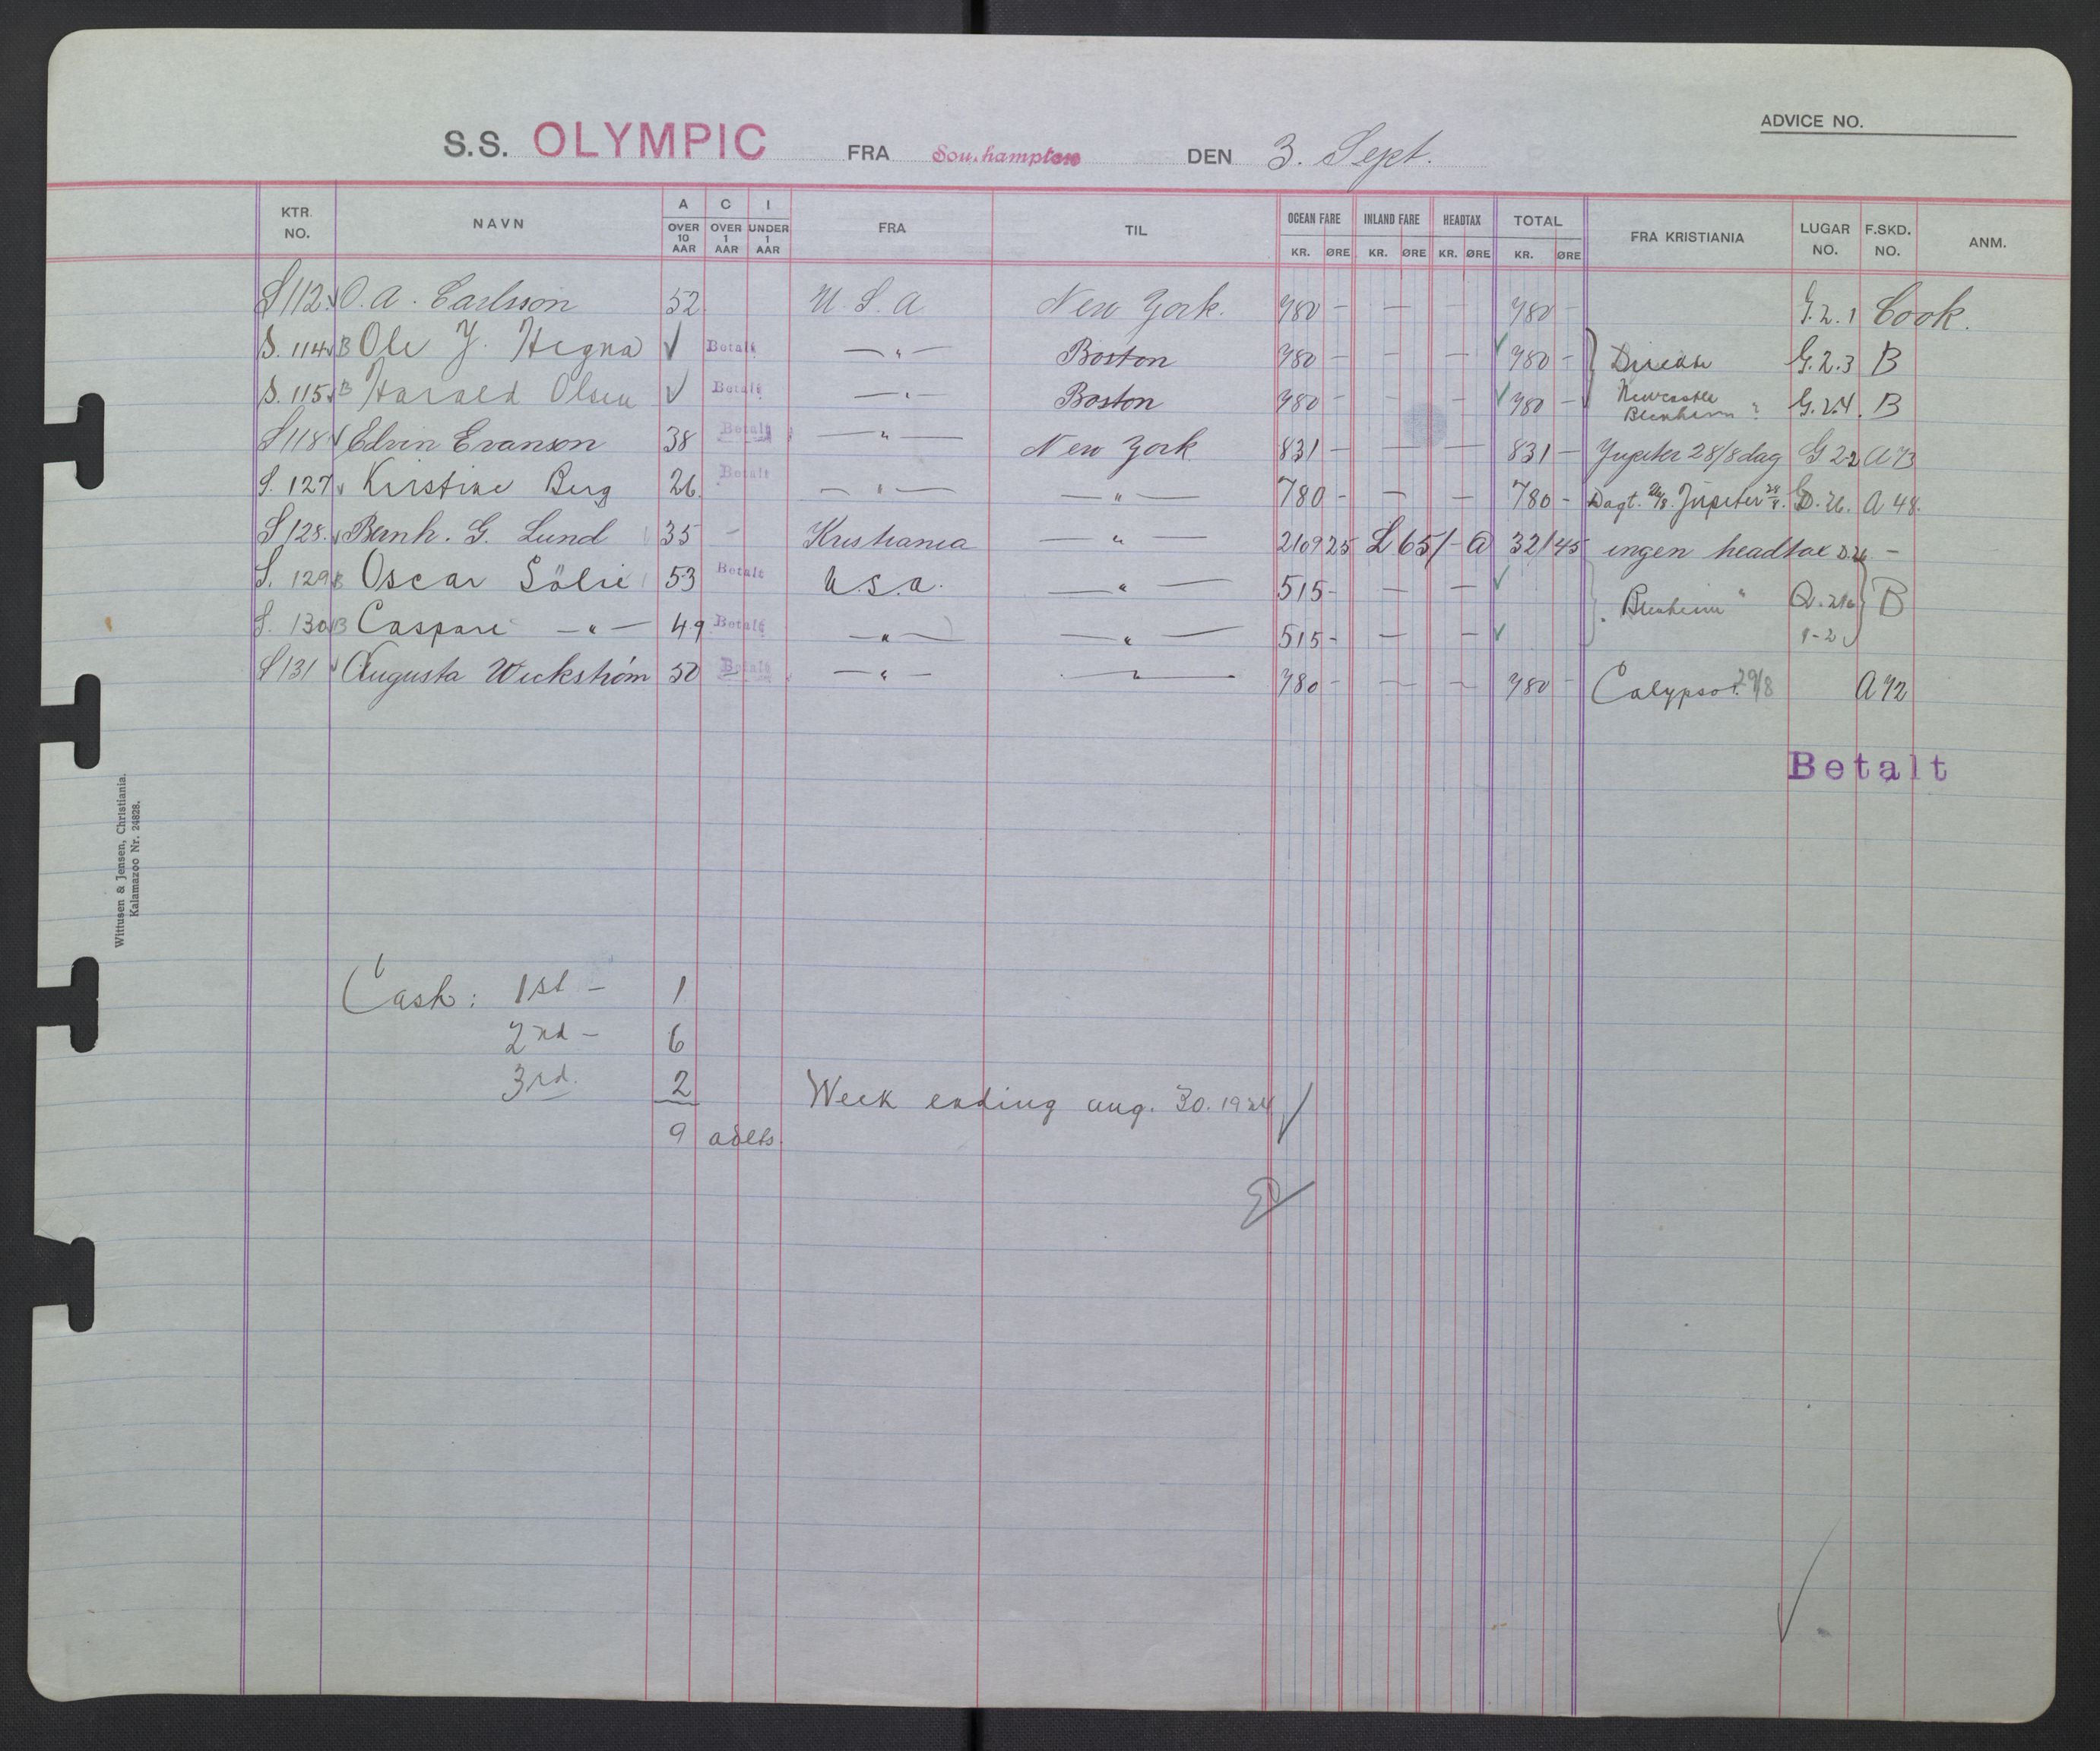 ADVICE NO.
S.S. OLYMPIC FRA Southampton DEN 3. Sept.
KTR. NO. NAVN A OVER 10 AAR C OVER 1 AAR I UNDER 1 AAR FRA TIL OCEAN FARE KR. ØRE INLAND FARE KR. ØRE HEADTAX KR. ØRE TOTAL KR. ØRE FRA KRISTIANIA LUGAR NO. F.SKD. NO. ANM.
S112 O. A. Carlsson 52 U.S.A New York. 780 - - - 780 - G.2.1 Cook.
S. 114 B Ole J. Hegna √ Betalt -"- Boston 780 - - - √ 780 - G.2.3 B
S. 115 B Harald Olsen √ Betalt -"- Boston 780 - - - √ 780 - Newcastle Blenheim ? G.2.4. B
S118 √ Edvin Evanson 38 Betalt -"- New York 831 - - - 831 - Jupiter 28/8 dag G 22 A73
S. 127 √ Kirstine Berg 26. Betalt -"- -"- 780 - - - 780 - Dagt. Jupiter A 48.
S128. √ Bernh. G. Lund 35 - Kristiania -"- 2109 25 £ 65/- 3214 5 ingen headtax -
S. 129 B Oscar Sölie 53 Betalt U.S.A. -"- 515 - - - √ Blenheim B
S. 130 B Caspara -"- 49 Betalt -"- -"- 515 - - - √ 1-2
S131 √ Augusta Wickstrøm 50 Betalt -"- -"- 780 - - - 780 - Calypso 29/8 A 72
Betalt
Wittusen & Jensen, Christiania.
Kalamazoo Nr. 24828.
Cash: 1st - 1
2nd - 6
3rd. 2
Week ending aug. 30. 1924 √
9 adlts.